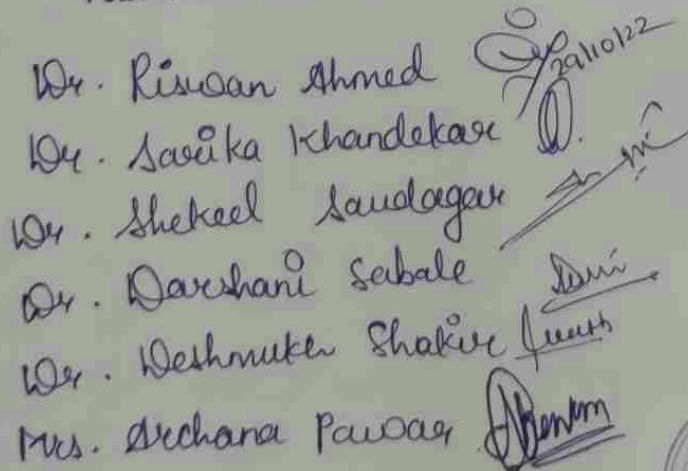 Dr. Riswan Ahmed 29/10/22
Dr. Sarika Khandekar
Dr. Shekeel Saudagar
Dr. Darshani Sabale
Dr. Deshmukh Shakir
Mrs. Archana Pawar